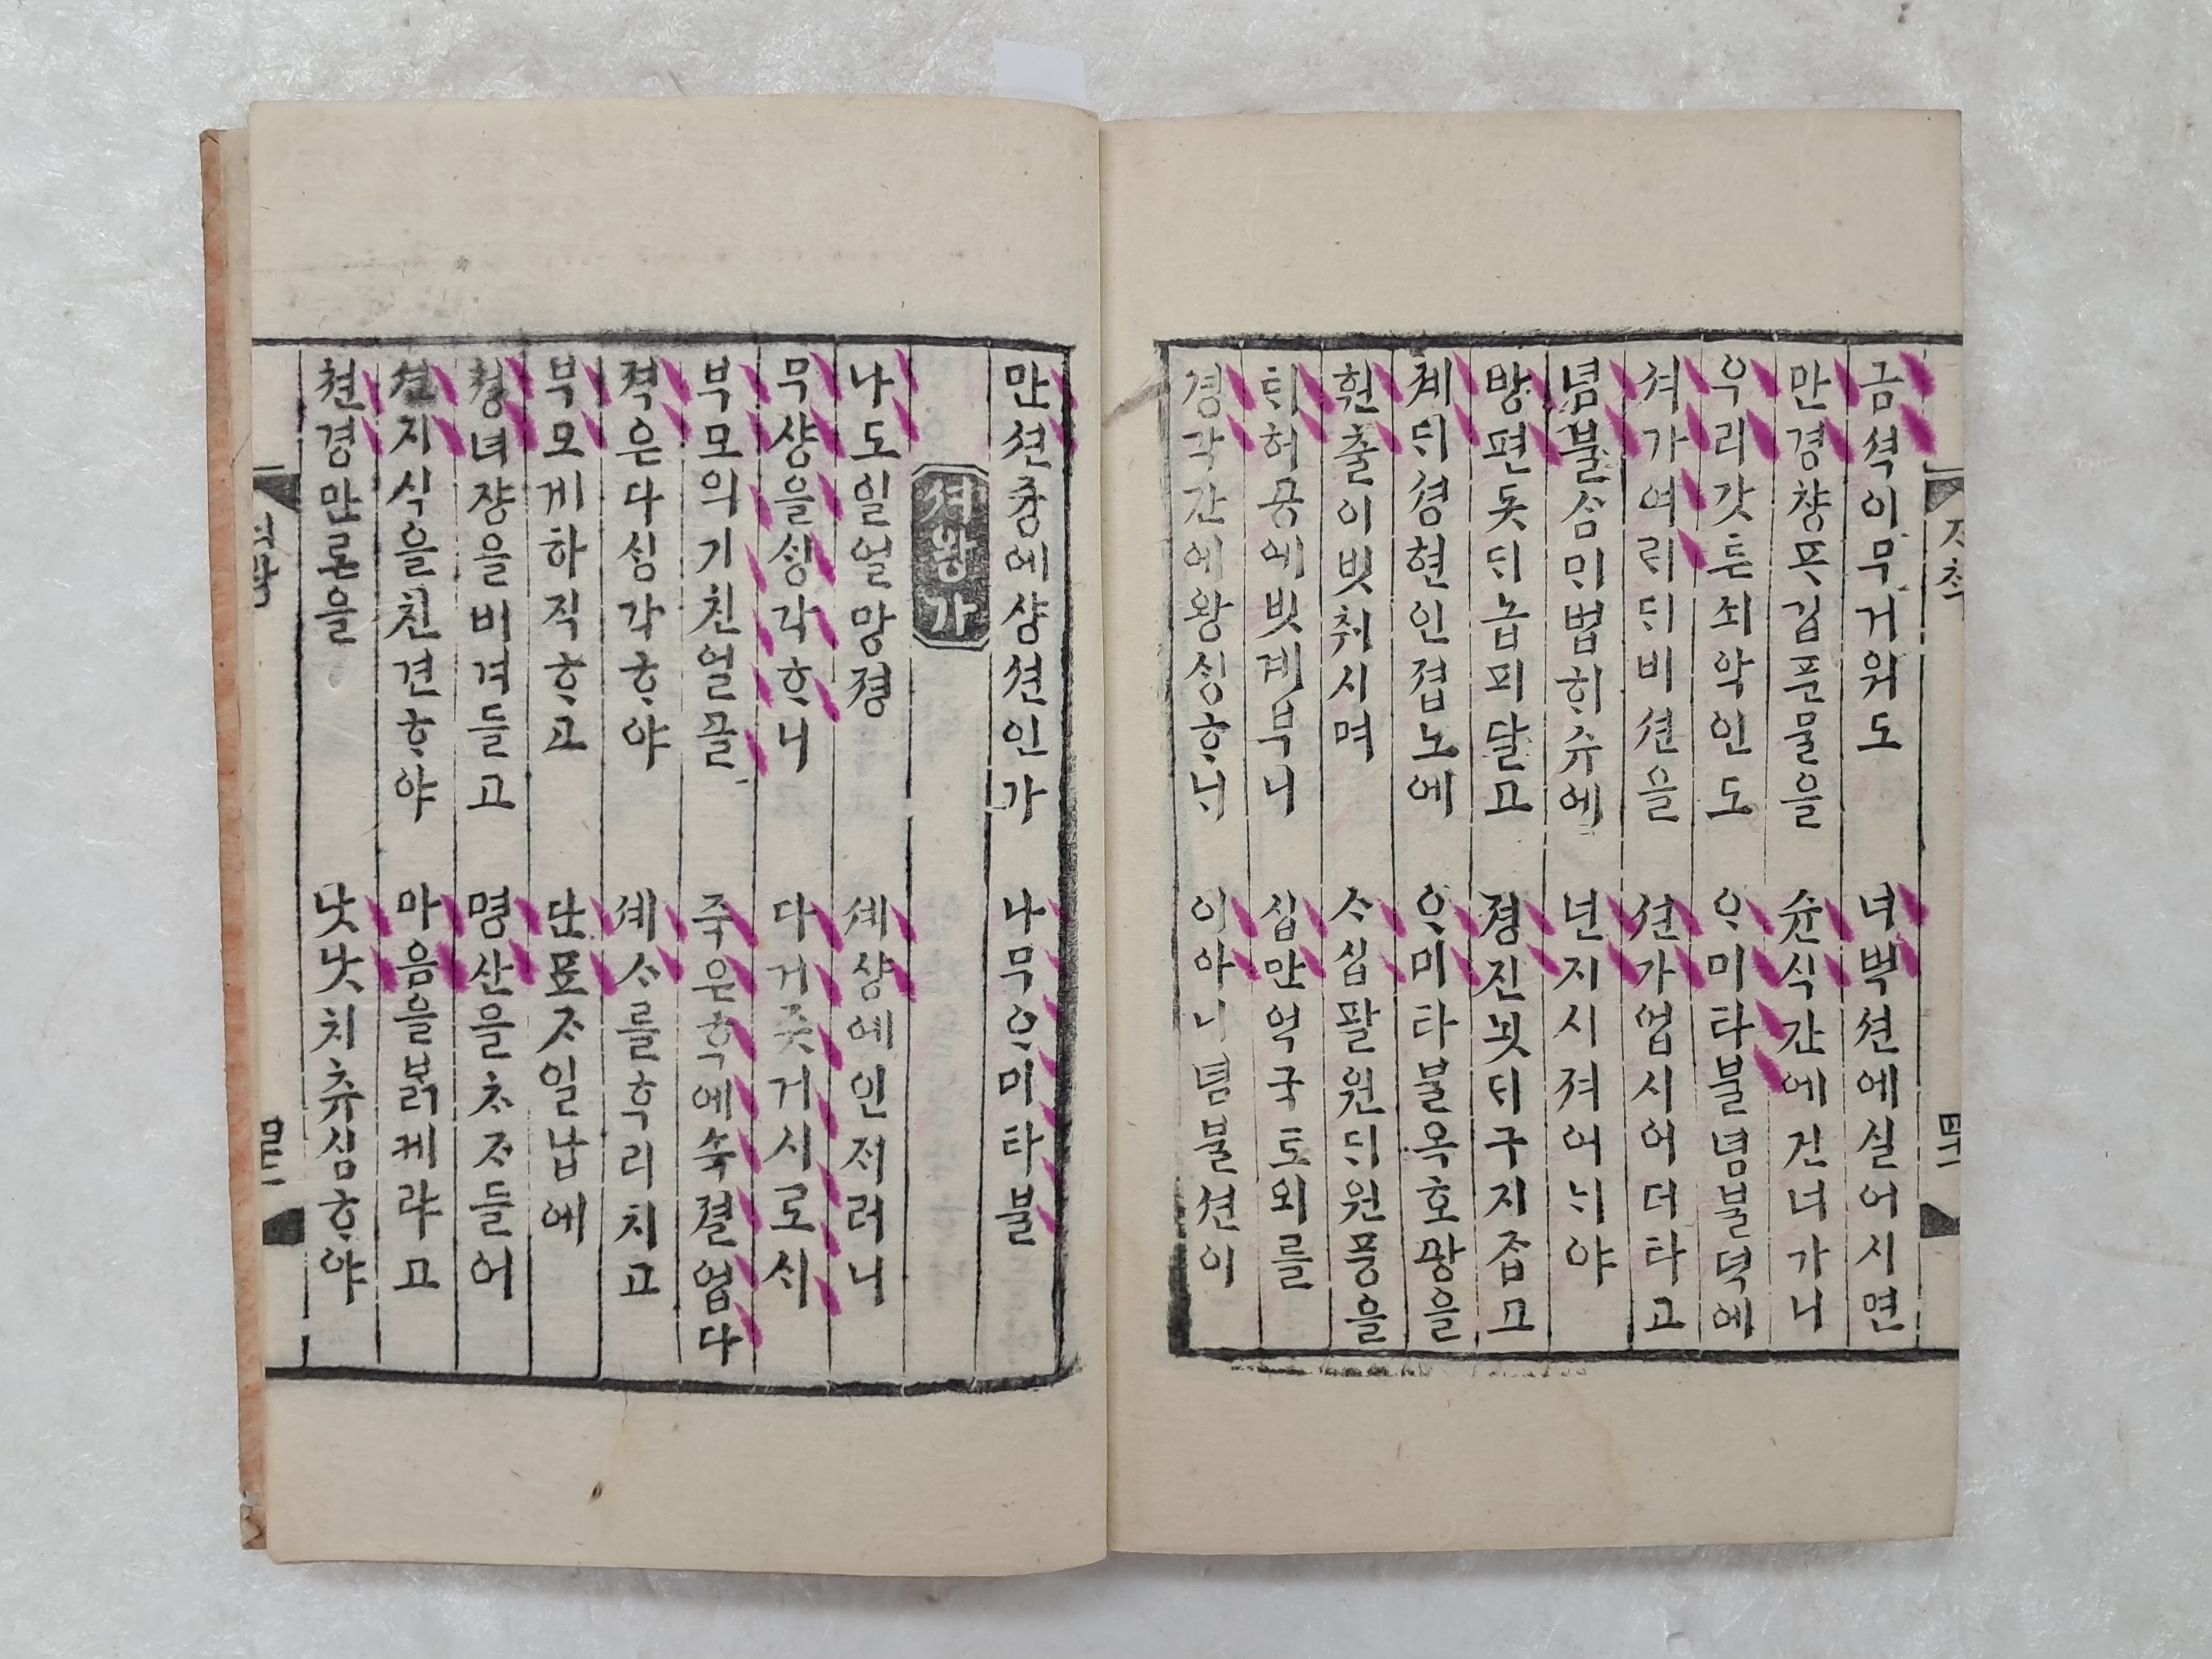 금셕이무거워도 녀벅션에실어시면
만경창ᄑᆞ깁푼물을 슌식간에건너가니
우리갓튼죄악인도 ᄋᆞ미타불념불덕에
셔가여ᄅᆡᄃᆡ비션을 션가업시어더타고
념불ᄉᆞᆷᄆᆡ법ᄒᆡ슈에 년지시져어ᄂᆡ야
방편돗ᄃᆡ놉피달고 졍진뇟ᄃᆡ구지줍고
졔ᄃᆡ셩현인졉노에 ᄋᆞ미타불옥호광을
훤츌이빗취시며 ᄉᆞ십팔원ᄃᆡ원풍을
ᄐᆡ허공에빗계부니 십만억국토외를
경각간에왕ᄉᆡᆼᄒᆞᄂᆡ 이아니념불션이
만션즁에샹션인가 나무ᄋᆞ미타불
셔왕가
나도일얼망졍 셰샹에인져러니
무샹을ᄉᆡᆼ각ᄒᆞ니 다거즛거시로ᄉᆡ
부모의기친얼골 죽은후에쇽졀업다
젹은다심각ᄒᆞ야 셰ᄉᆞ를후리치고
부모게하직ᄒᆞ고 단표ᄌᆞ일납에
청녀쟝을비겨들고 명산을ᄎᆞᄌᆞ들어
션지식을친견ᄒᆞ야 마음을ᄇᆞᆰ케랴고
쳔경만론을 낫낫치츄심ᄒᆞ야